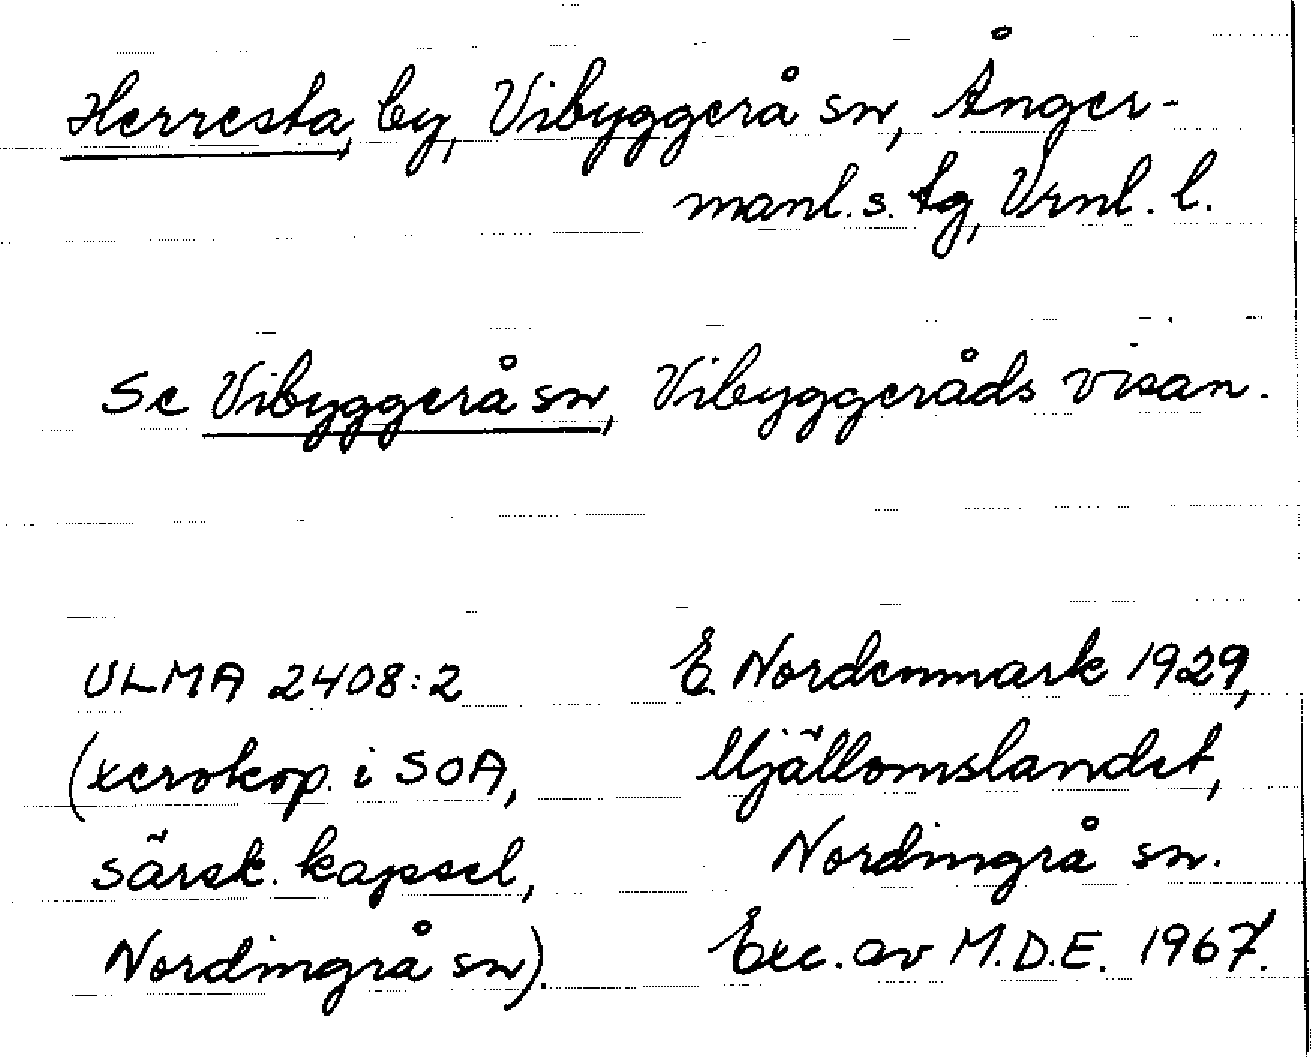 Herresta, by, Vibyggerå sn, Ånger-
manl. s. tg, Vrnl. l.
Se Vibyggerå sn, Vibyggeråds visan.
ULMA 2408:2
(xerokop. i SOA,
särsk. kapsel,
Nordingrå sn).
E. Nordenmark 1929,
Mjällomslandet,
Nordingrå sn.
Exc. av M.D.E. 1967.